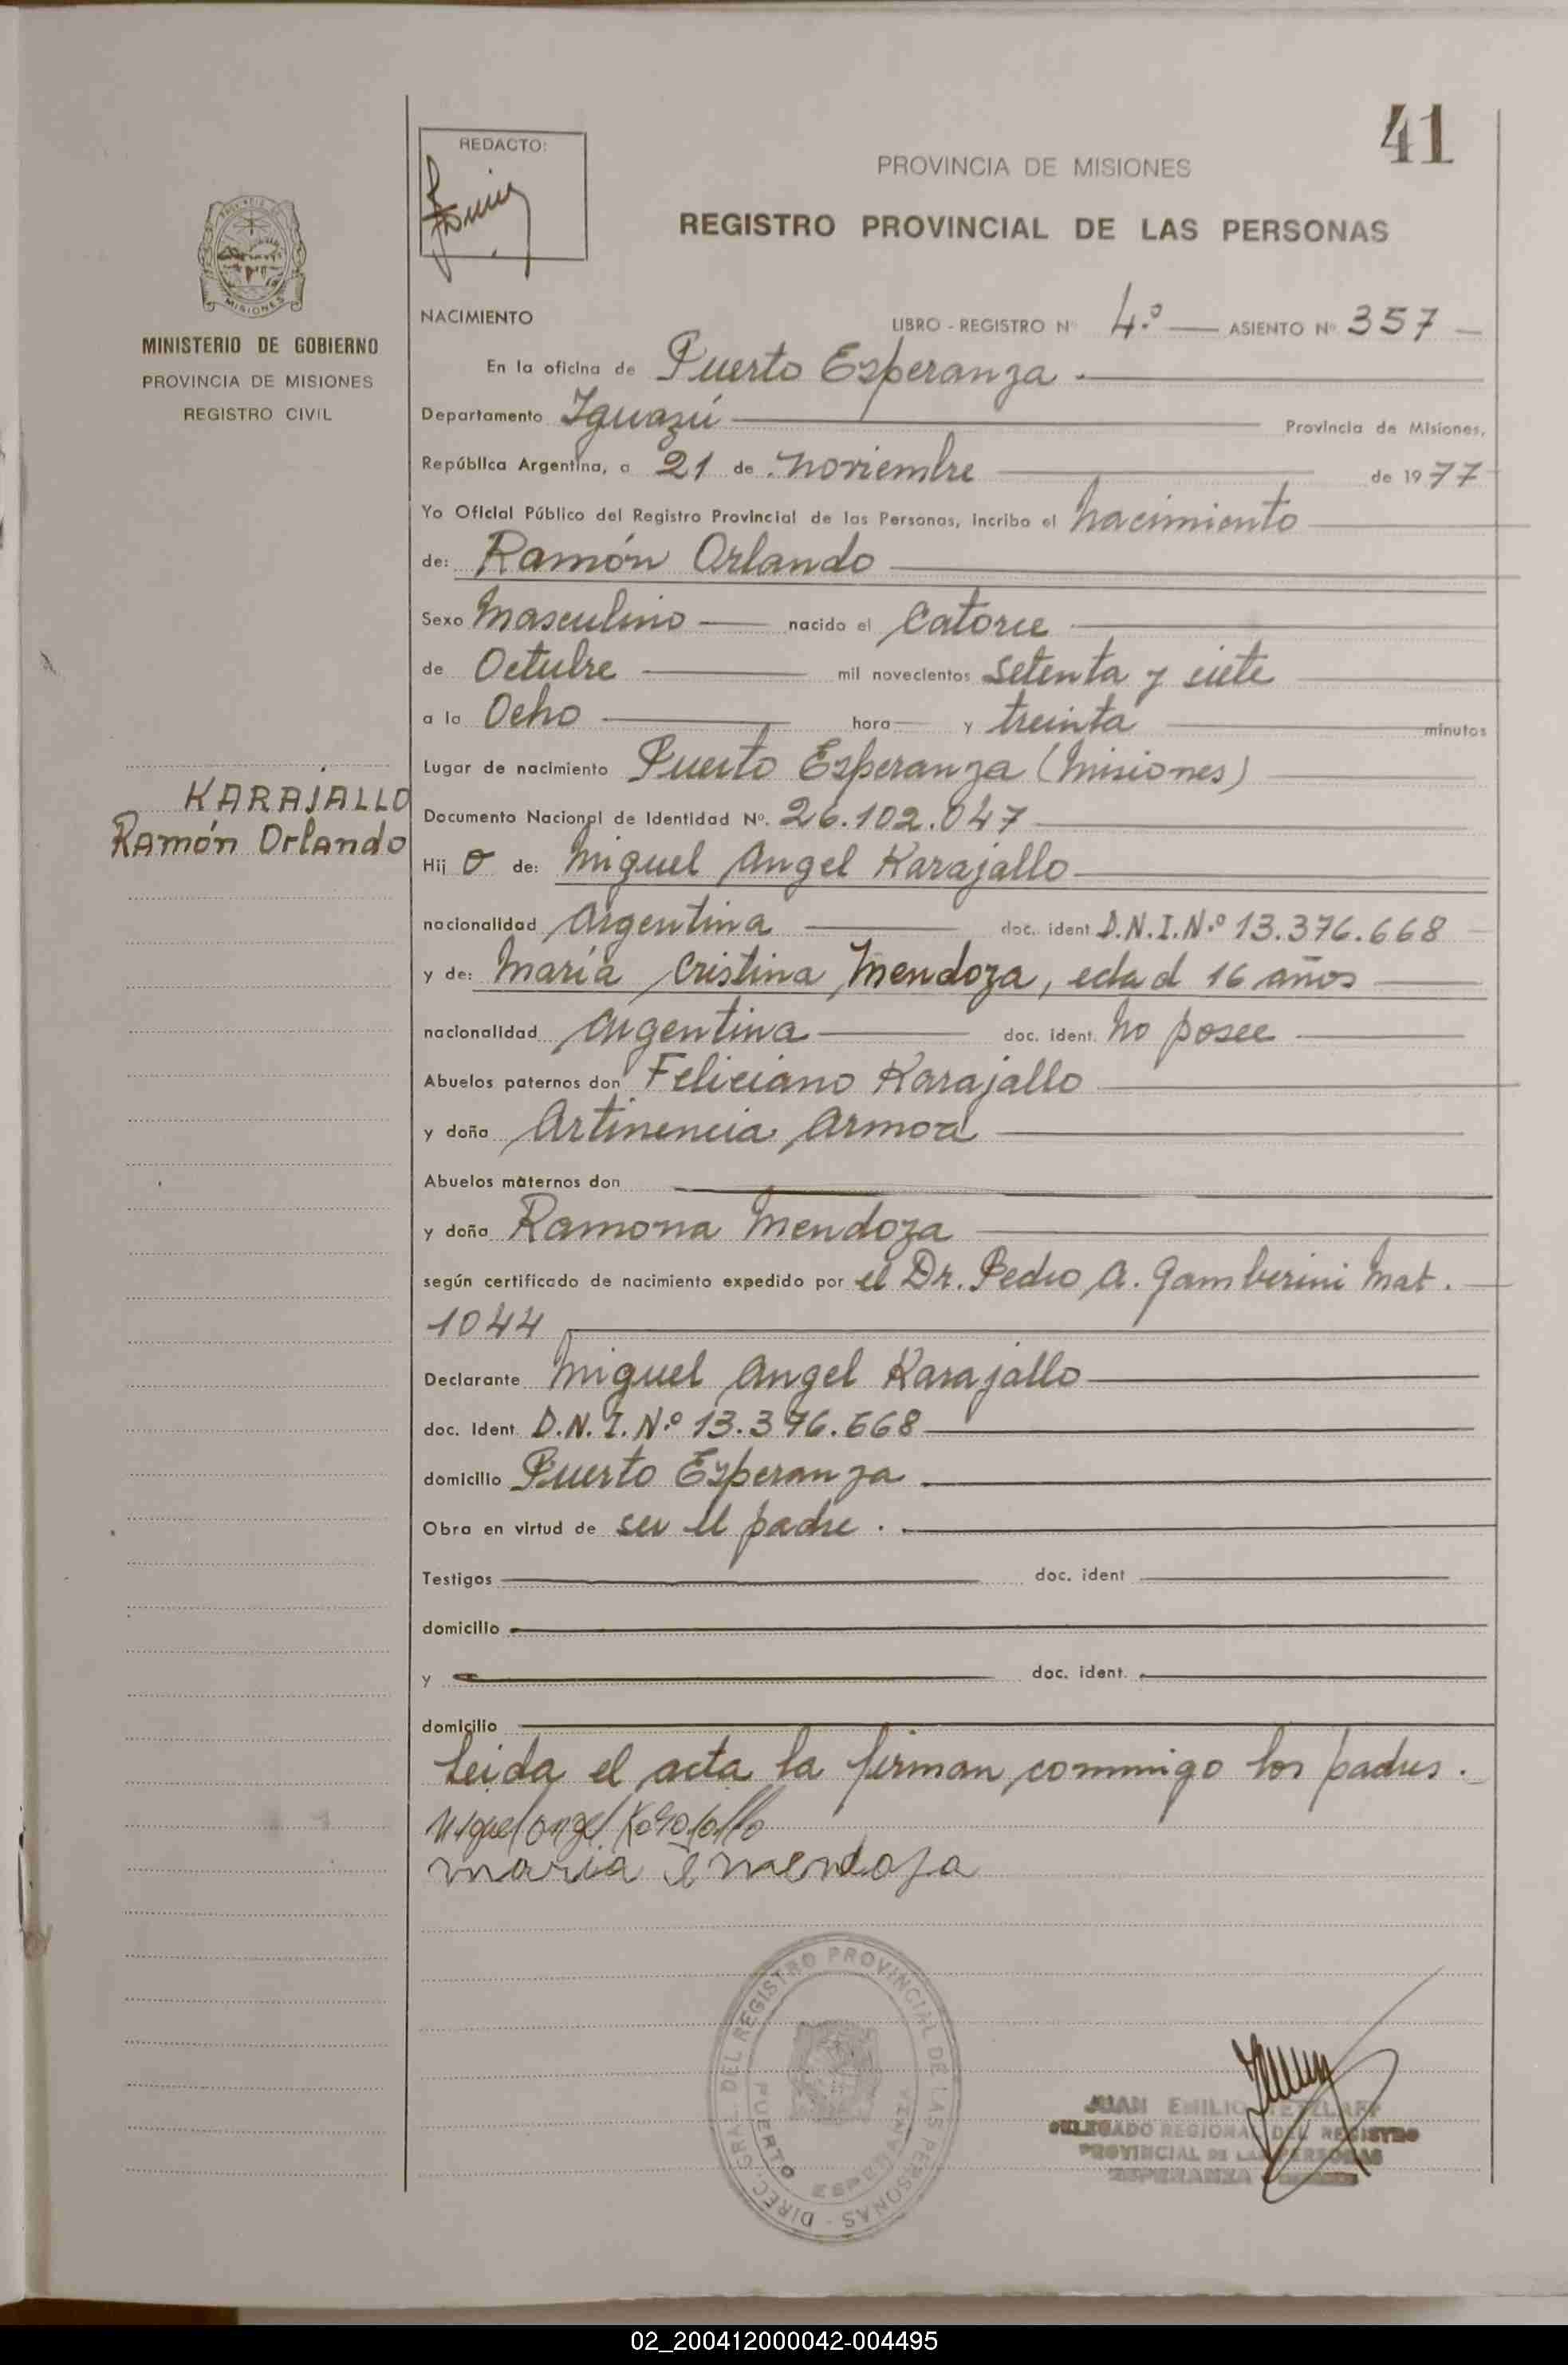 41
REDACTO:
PROVINCIA DE MISIONES
REGISTRO PROVINCIAL DE LAS PERSONAS
MISIONES
MINISTERIO DE GOBIERNO
PROVINCIA DE MISIONES
REGISTRO CIVIL
KARAJALLO
Ramón Orlando
NACIMIENTO LIBRO - REGISTRO Nº 4.º ASIENTO Nº 357
En la oficina de Puerto Esperanza.
Departamento Iguazú Provincia de Misiones,
República Argentina, a 21 de noviembre de 1977
Yo Oficial Público del Registro Provincial de las Personas, incribo el nacimiento
de: Ramón Orlando
Sexo Masculino nacido el Catorce
de Octubre mil novecientos setenta y siete
a la Ocho hora y treinta minutos
Lugar de nacimiento Puerto Esperanza (Misiones)
Documento Nacional de Identidad Nº. 26.102.047
Hij o de: Miguel Angel Karajallo
nacionalidad Argentina doc. ident D.N.I.N.º 13.376.668
y de: María Cristina Mendoza, edad 16 años
nacionalidad Argentina doc. ident. No posee
Abuelos paternos don Feliciano Karajallo
y doña Artinencia Armoa
Abuelos maternos don
y doña Ramona Mendoza
según certificado de nacimiento expedido por el Dr. Pedro A. Gamberini Mat.
1044
Declarante Miguel Angel Karajallo
doc. Ident D.N.I.N.º 13.376.668
domicilio Puerto Esperanza
Obra en virtud de ser el padre.
Testigos doc. ident
domicilio
y doc. ident.
domicilio
Leida el acta la firman conmigo los padres.
Miguel Angel Karajallo
maria C mendoza
DIREC. GRAL. DEL REGISTRO PROVINCIAL DE LAS PERSONAS -
PUERTO ESPERANZA
JUAN EMILIO
DELEGADO REGIONAL DEL REGISTRO
PROVINCIAL DE LAS PERSONAS
ESPERANZA
02_200412000042-004495